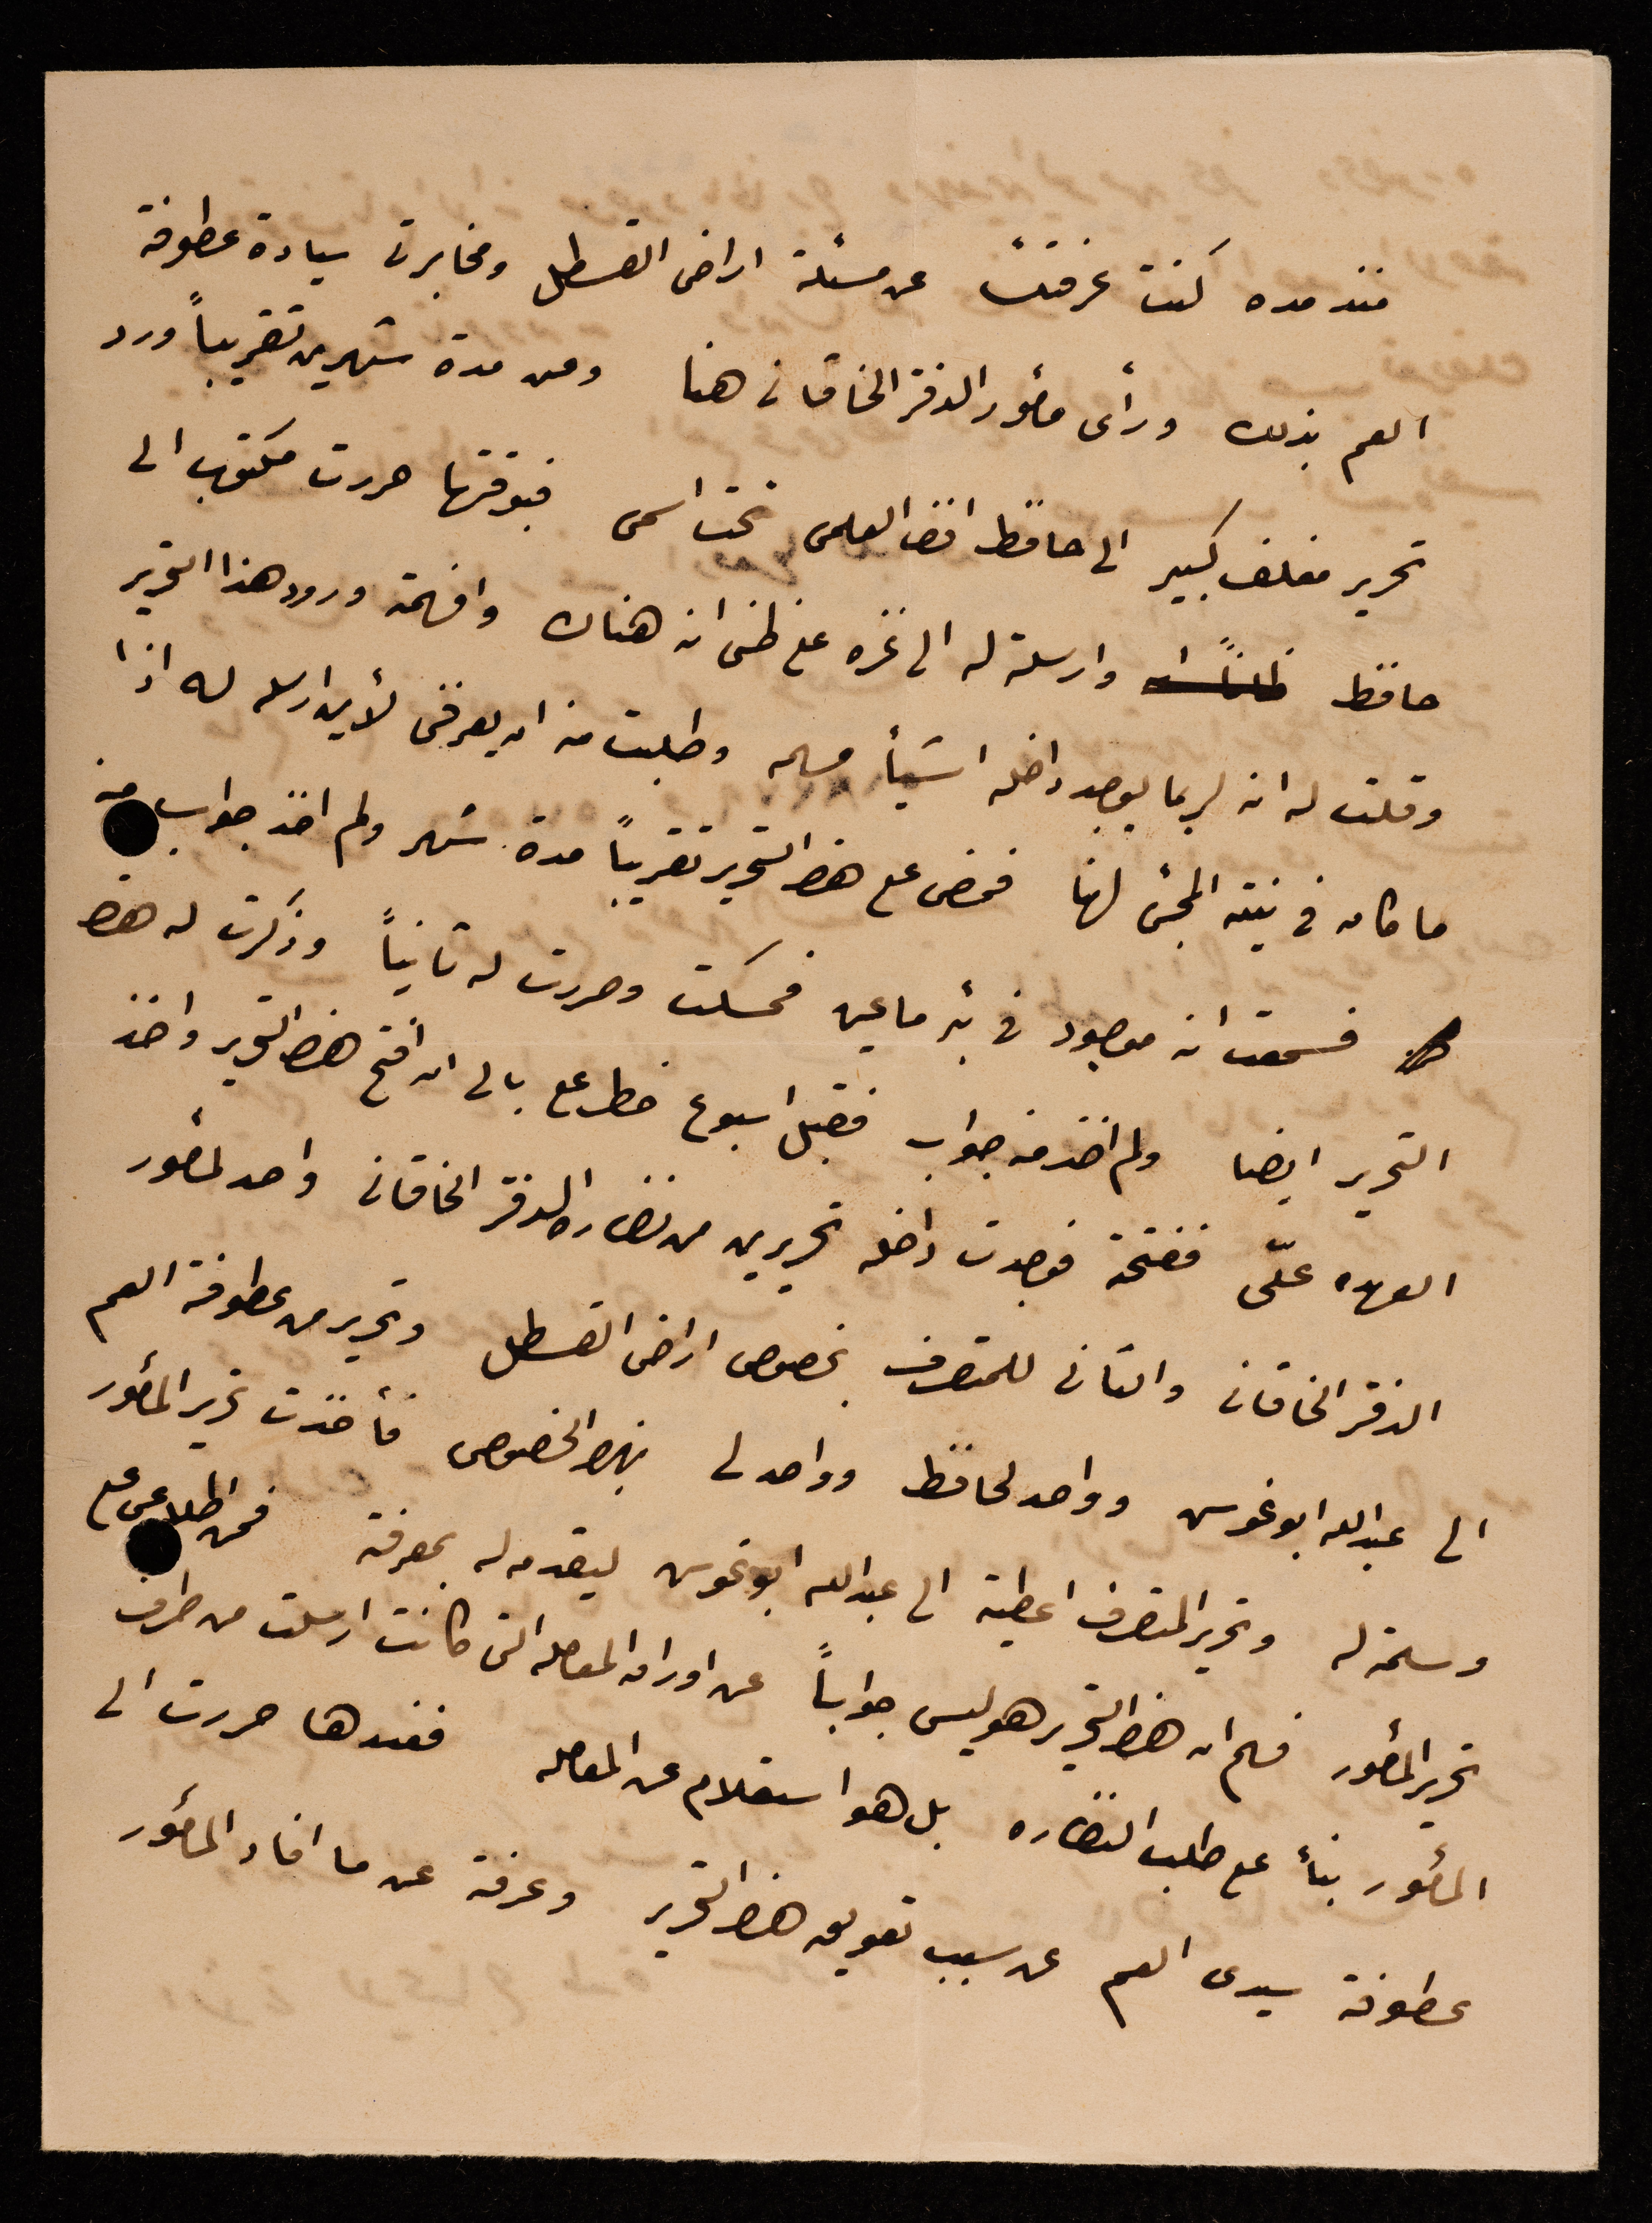 منذ مده كنت عرفتك عن مسئلة اراضى القسطل ومخابرتى سيادة عطوفة
العم بذلك ورأى مأمور الدفتر الخاقانى هنا ومن مدة شهرين تقريباً ورد
تحرير مغلف كبير الى حافظ افندى العلمى تحت اسمى فبوقتها حررت مكتوب الى
حافظ وارسلته له الى غزه على ظنى انه هناك وافهمته ورود هذا التحرير
وقلت له انه لربما يوجد داخله اشيأ مهمه وطلبت منه ان يعرفنى لأين ارسله له اذا
ما كان فى نيته المجئ لهنا فمضى على هذا التحرير تقريباً مدة شهر ولم اخذ جواب منه
فسمعت انه موجود فى بئر ماعين فمسكت وحررت له ثانياً وذكرت له هذا
التحرير ايضا ولم اخذ منه جواب فقبل اسبوع خطر على بالى ان افتح هذا التحرير واخذ
العهده علىّ ففتحته فوجدت داخله تحريرين من نظاره الدفتر الخاقانى واحد لمأمور
الدفتر الخاقانى والثانى للمتصرف بخصوص اراضى القسطل وتحرير من عطوفة العم
الى عبدالله ابو غوش وواحد لحافظ وواحد لى بهذا الخصوص فأخذت تحرير المأمور
وسلمته له وتحرير المتصرف اعطيته الى عبدالله ابو غوش ليقدمه له بمعرفته فمن اطلاعى على
تحرير المأمور فهم ان هذا التحرير هو ليس جواباً عن اوراق المعامله التى كانت ارسلت من طرف
المأمور بنأ على طلب النظاره بل هو استعلام عن المعامله فعندها حررت الى
عطوفة سيدى العم عن سبب تعويق هذا التحرير وعرفته عن ما افاد المأمور